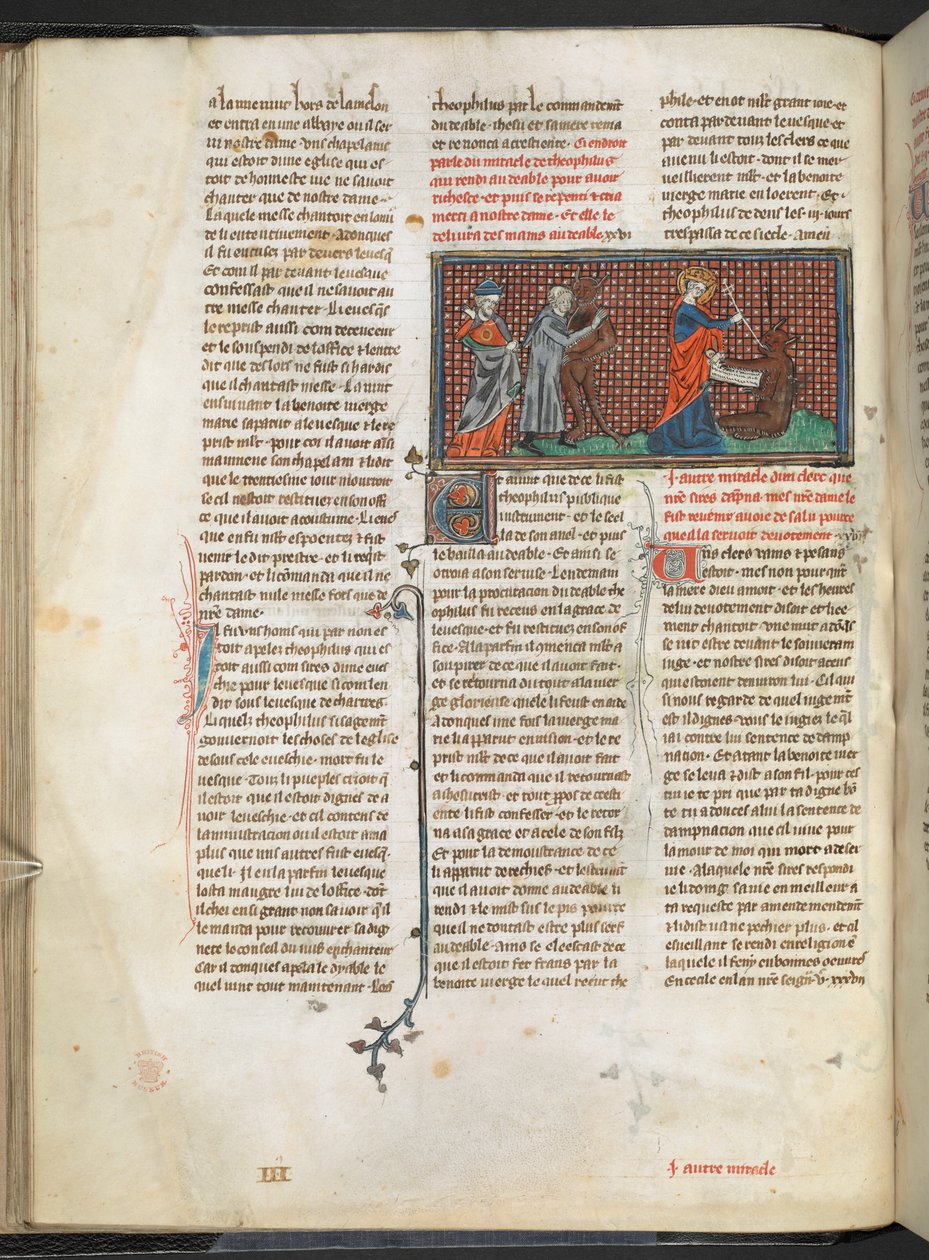 a la mie nuit hors de la meson
et entra en une abbaie ou il ser
ui nostre dame · uns chapelains
qui estoit dune eglise qui es
toit de honneste uie ne sauoit
chanter que de nostre dame ·
La quele messe chantoit en lonn
de li ententiuement · Adonques
il fu encusez par deuers leuesq̄
Et com il par deuant leuesque
confessast que il ne sauoit au
tre messe chanter · Li euesq̄s
le reprist aussi com deceueur
et le souspendi de loffice ⁊ lentre
dit que des lors ne fust si hardis
que il chantast messe · La nuit
ensiuant la benoite uierge
marie saparut a leuesque ⁊ le re
prist ml't · pour coi il auoit aisi
mal mene son chapelain ⁊ li dit
que le trentiesme iour mourroit
se cil nestoit restituez en son off
ce que il auoit acoustume ·
que en fu ml't espoentez ⁊ fist
uenir le dit prestre · et li requist
pardon · et li cōmanda que il ne
chantast nule messe fors que de
nr̄e dame ·
Il fu uns homs qui par non es
toit apelez theophilus qui es
toit aussi com sires dune eues
chie pour leuesque si com len
dit sous leuesque de chartres ·
Li quelz theophilus si sagem̄t
gouuernoit les choses de leglise
desous cele eueschie · mort fu le
uesque · Touz li pueples crioit q̄
il estoit que il estoit dignes de a
uoir leueschie · et cil contens de
laministracion ou il estoit ama
plus que uns autres fust euesq̄ ·
que li · Et en la parfin leuesque
losta maugre lui de loffice · dōt
il chei en si grant non sauoir q̄ il
le manda pour recouurer sa dig
nete le conseil du iuis enchanteur
Car il donques apela le dyable le
quel uint tout maintenant · Lors
theophilus par le commandem̄t
du deable · ihesu et sa mere renia
et renonca a crestiente · Ci endroit
parle du miracle de theophilus
qui rendi au deable pour auoir
richesce · et puis se repenti ⁊ cria
merci a nostre dame · Et elle le
deliura des mains au deable xxvi
Et auint que de ce li fist
theophilus publique
instrument · et le seel
la de son anel · et puis
le bailla au deable · Et ainsi se
otroia a son seruise · Lendemain
pour la procuration du deable the
ophilus fu receus en la grace de
leuesque · et fu restituez en son of
fice · A la parfin il cōmenca ml't a
souspirer de ce que il auoit fait ·
et se retourna du tout a la uier
ge glorieuse quele li feust en aide
Adonques une fois la uierge ma
rie li apparut en uision · et le re
prist ml't de ce que il auoit fait
et li commanda que il retournast
a ihesucrist · et tout p̄pos de cresti
ente li fist confesser · et le retor
na a sa grace et a cele de son filz
Et pour la demoustrance de ce
li aparut derechief · et
que il auoit donne au deable li
rendi ⁊ le mist sus le pis pource
que il ne doutast estre plus serf
au deable · Ains se esleescast de ce
que il estoit fet frans par la
benoite uierge le quel recut the
phile · et en ot ml't grant ioie · et
conta par deuant leuesque · et
par deuant touz les clers ce que
auenu li estoit · dont il se mer
ueillierent ml't · et la benoite
uierge marie en loerent · Et ·
theophilus de dens les · iij · iours
trespassa de ce siecle · Amen
·I· autre miracle dun clerc que
nr̄e sires dāpna · mes nr̄e dame le
fist reuenir a uoie de salu pource
que il la seruoit deuotement · xxvij
Uns clers uains ⁊ pesans
estoit · mes non pour qn̄t
la mere dieu amoit · et les heures
de lui deuotement disoit et liee
ment chantoit · une nuit auīs
se uit estre deuant le souuerain
iuge · et nostre sires disoit a ceus
qui estoient denuiron lui · Cil qui
si nous regarde de quel iugem̄t
est il dignes · vous le iugiez le q̄l
iai contre lui sentence de damp
nation · Et atant la benoite uier
ge se leua ⁊ dist a son fil · pour ces
tui ie te pri que par ta digne bō
te tu adouces a lui la sentence de
dampnacion que cil uiue pour
lamour de moi qui mort a deser
uie · A laquele nr̄e sires respondi
ie li doing sa uie en meilleur a
ta requeste par amendemendem̄t
⁊ li dist ua ne pechier plus · et cil
esueillant se rendi en religion ⁊
laquele il feny en bonnes oeuures
En cecile en lan nr̄e seign̄r · v · xxxvij
BRITISH MUSEUM
III
·I· autre miracle